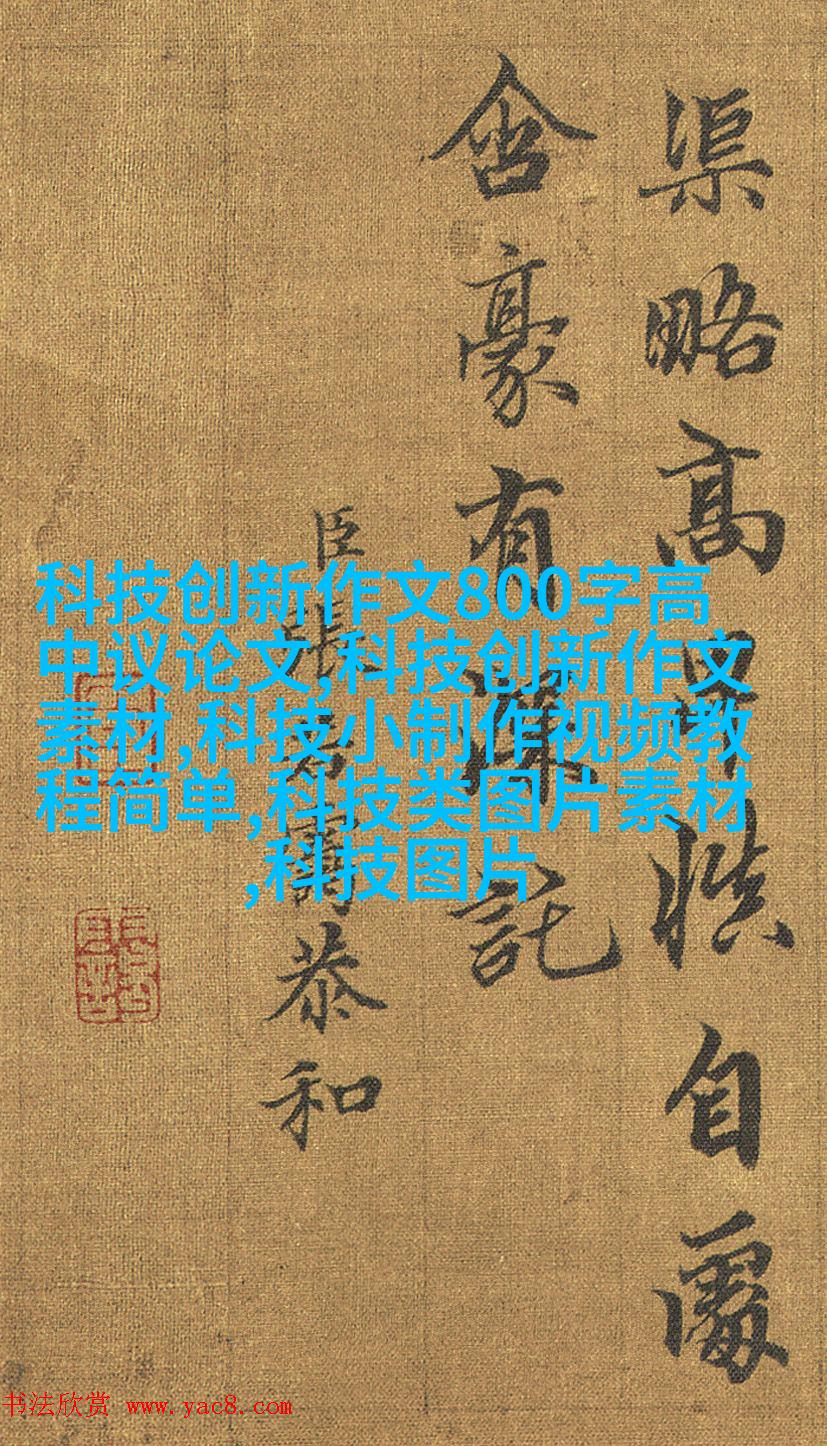 渠略高卑慎自處
含豪有深託
臣張若靄恭和
科技创新作文800字高
中议论文,科技创新作文
素材,科技小制作视频教
程简单,科技类图片素材
,科技图片
书法欣赏 www.yac8.com